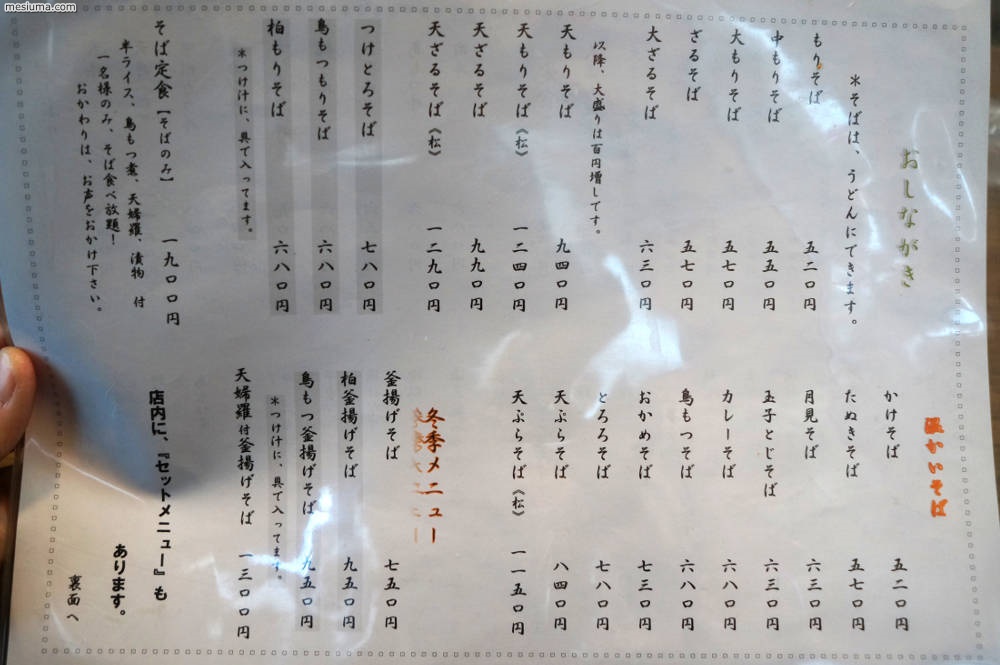 mesluma.com
おしながき
＊そばは、うどんにできます。
もりそば 五二〇円
中もりそば 五五〇円
大もりそば 五七〇円
ざるそば 五七〇円
大ざるそば 六三〇円
以降、大盛りは百円増しです。
天もりそば 九四〇円
天もりそば《松》 一二四〇円
天ざるそば 九九〇円
天ざるそば《松》 一二九〇円
つけとろそば 七八〇円
鳥もつもりそば 六八〇円
柏もりそば 六八〇円
＊つけ汁に、具で入ってます。
そば定食【そばのみ】 一九〇〇円
半ライス、鳥もつ煮、天婦羅、漬物 付
一名様のみ、そば食べ放題！
おかわりは、お声をおかけ下さい。
温かいそば
かけそば 五二〇円
たぬきそば 五七〇円
月見そば 六三〇円
玉子とじそば 六三〇円
カレーそば 六八〇円
鳥もつそば 六八〇円
おかめそば 七三〇円
とろろそば 七八〇円
天ぷらそば 八四〇円
天ぷらそば《松》 一一五〇円
冬季メニュー
釜揚げそば 七五〇円
柏釜揚げそば 九五〇円
鳥もつ釜揚げそば 九五〇円
＊つけ汁に、具で入ってます。
天婦羅付釜揚げそば 一三〇〇円
店内に、『セットメニュー』も
あります。
裏面へ